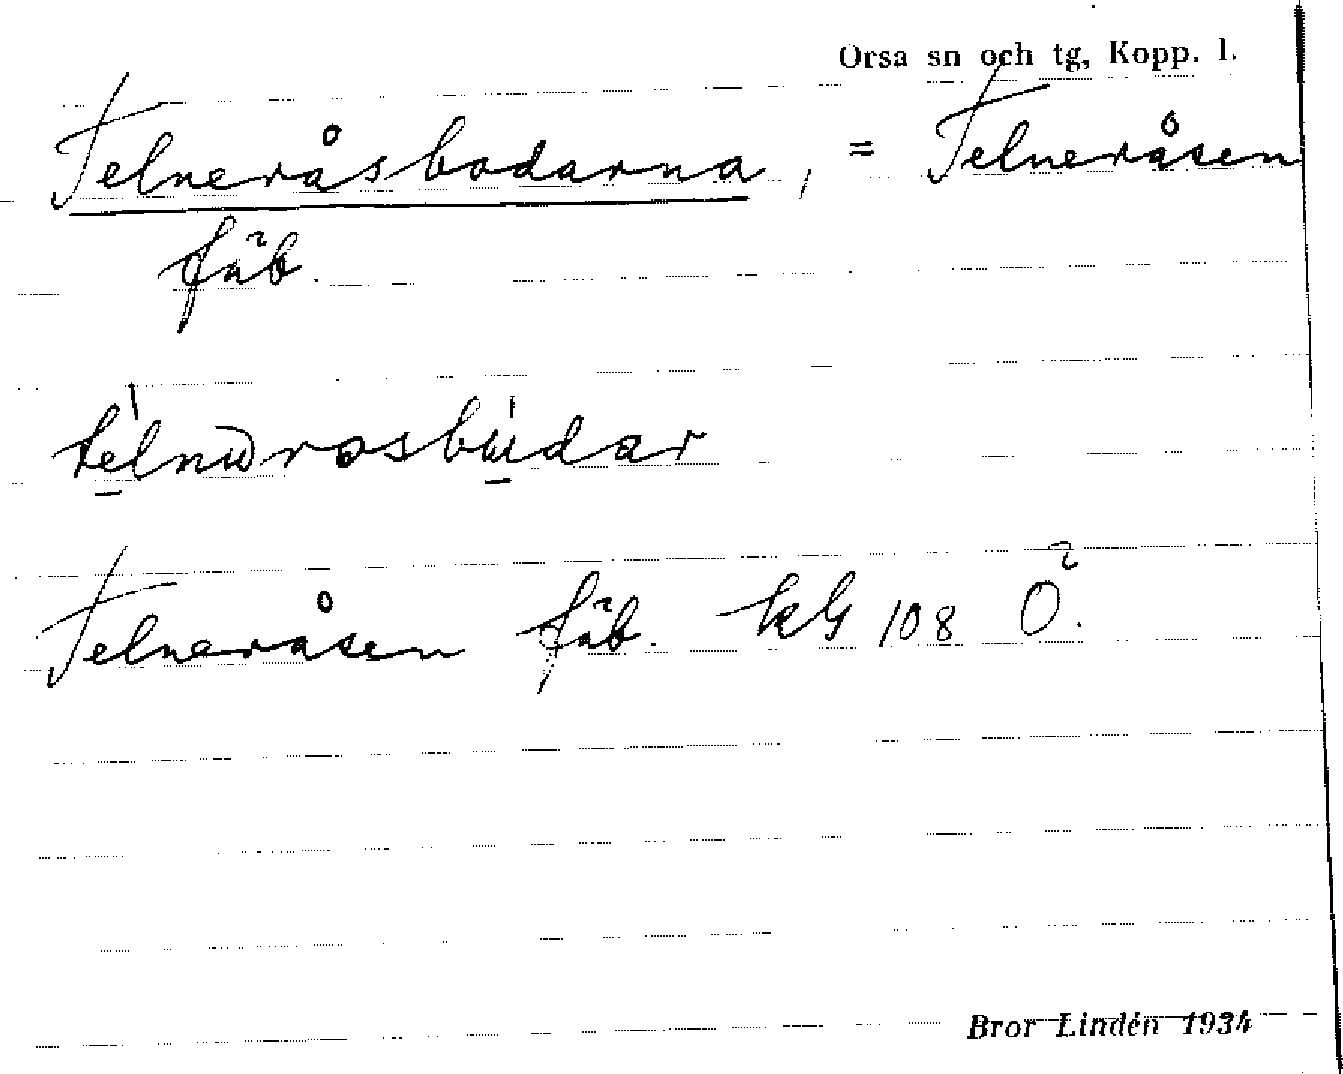 Orsa sn och tg, Kopp. l.
Telneråsbodarna, = Telneråsen
fäb.
Telneråsen fäb. kbl 108 Ö.
Bror Lindén 1934